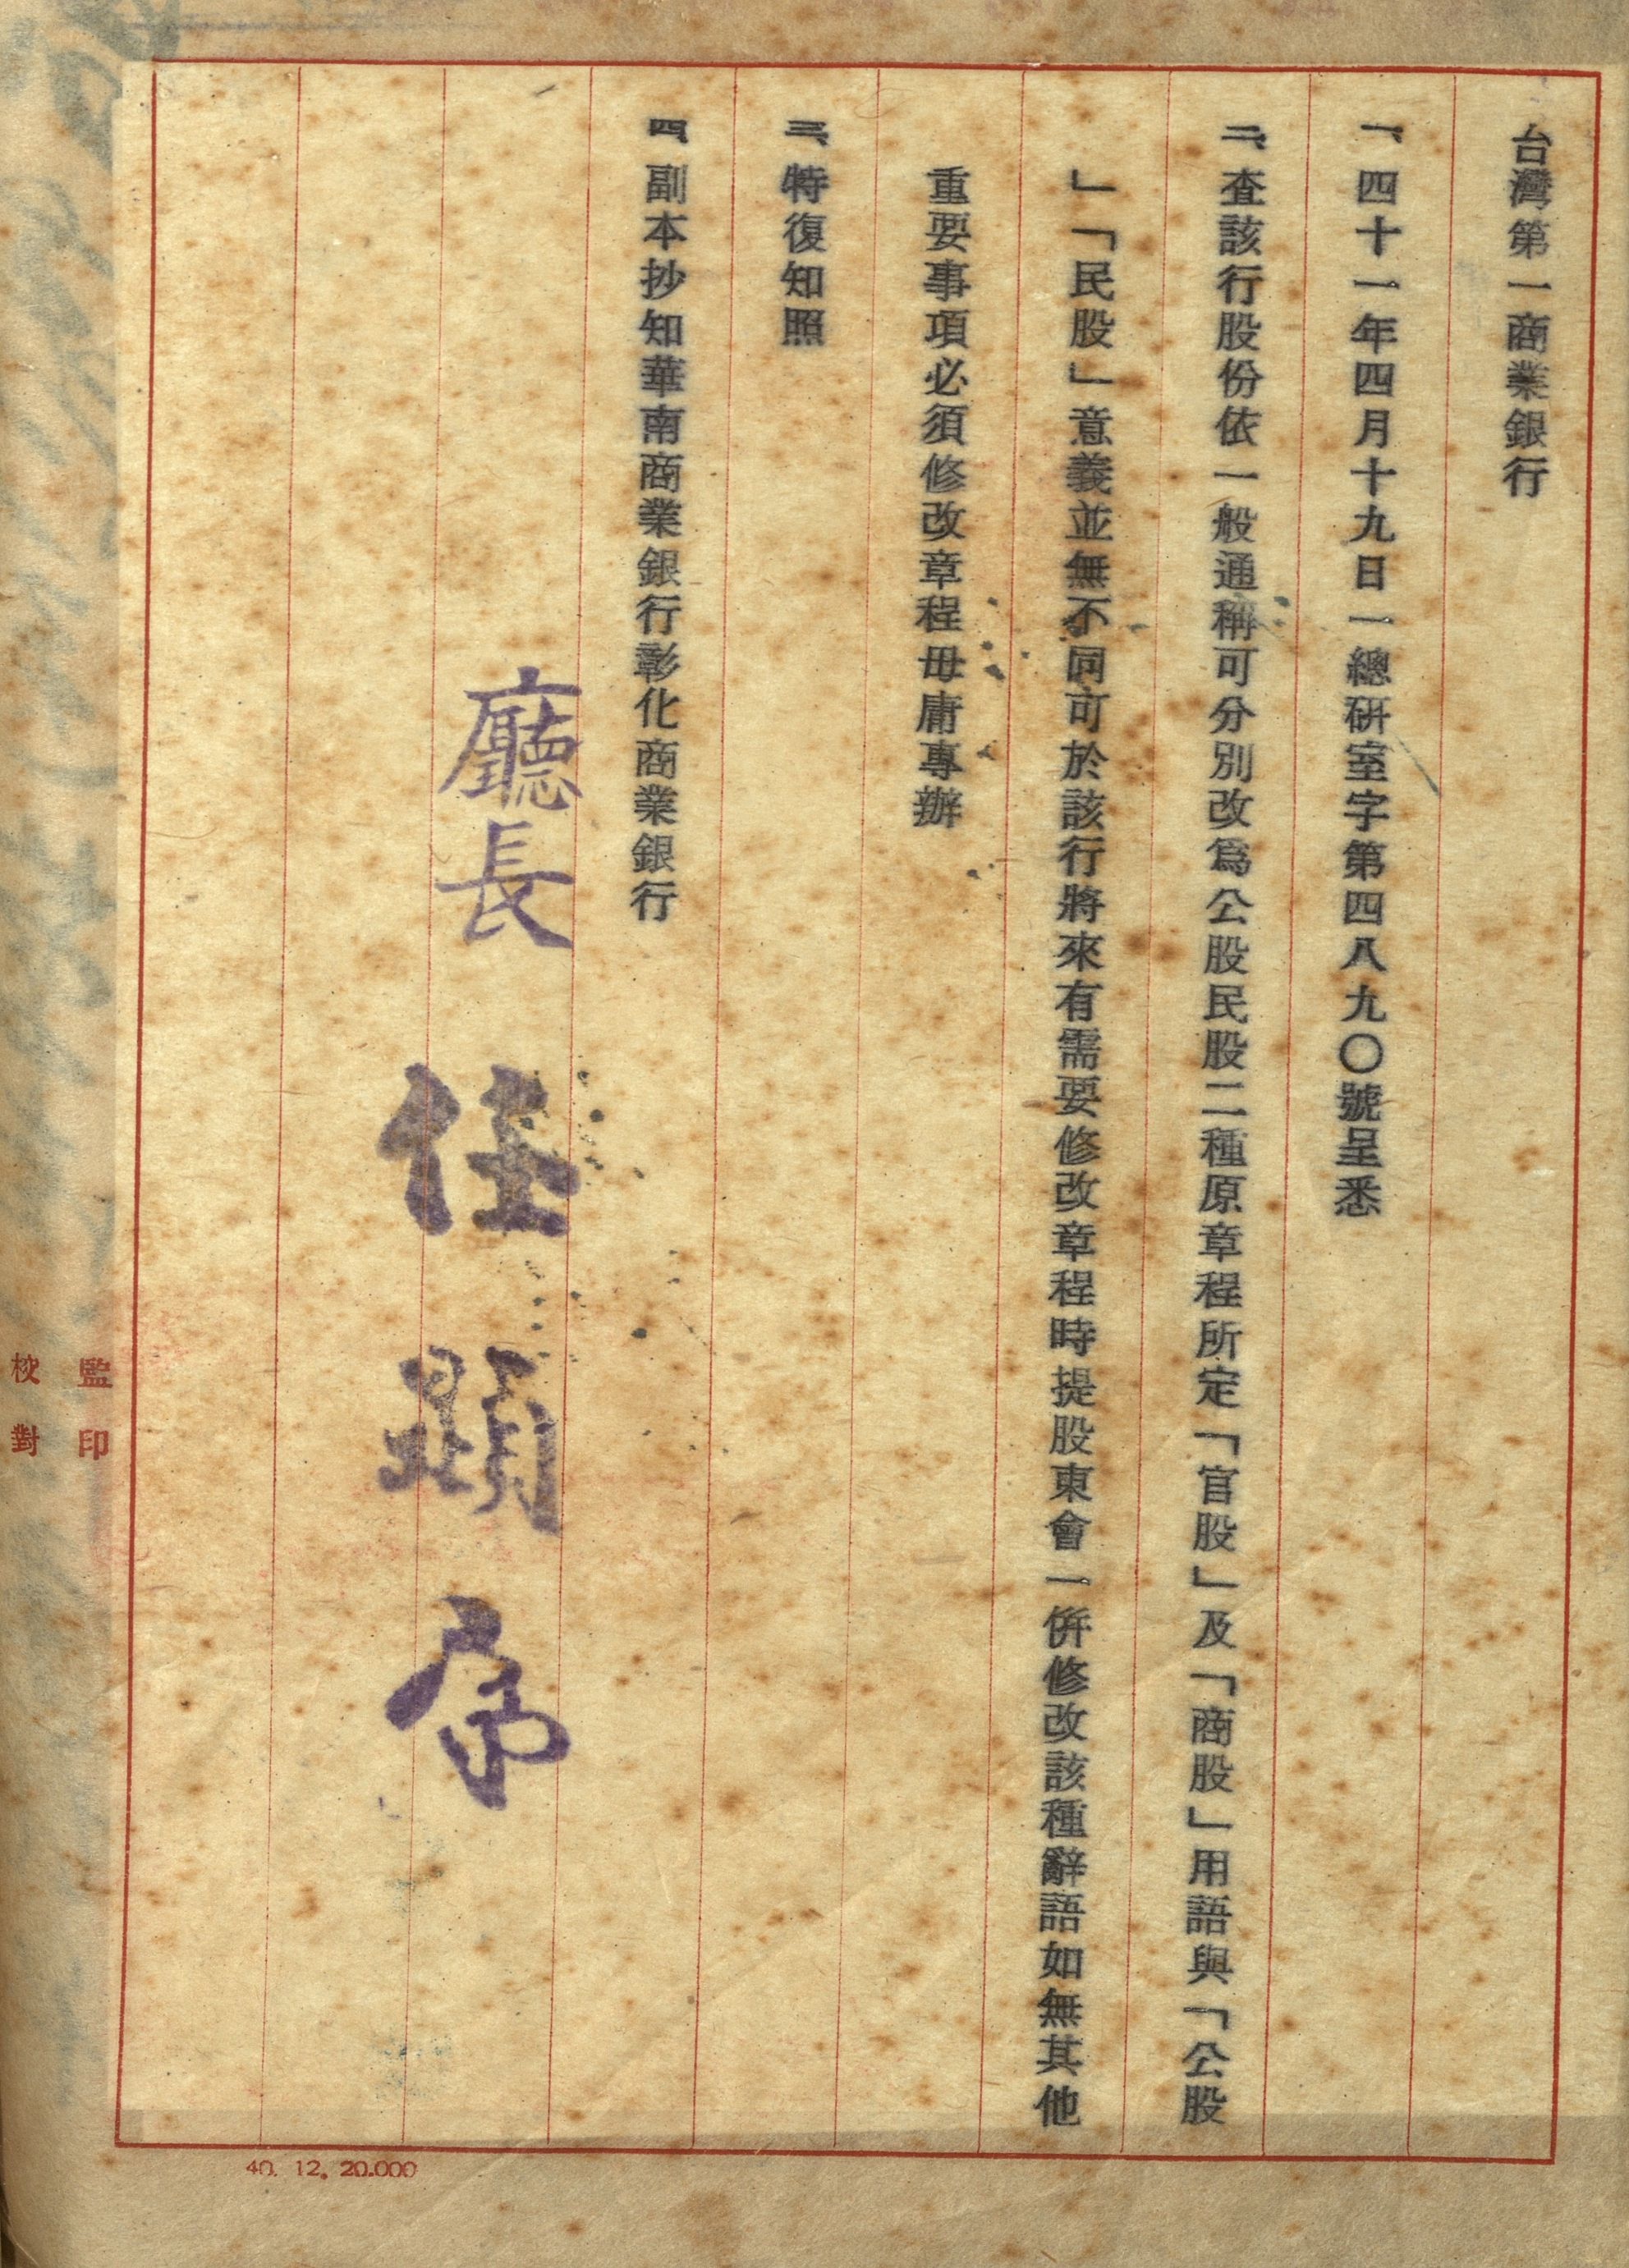 台灣第一商業銀行
一、四十一年四月十九日一總研室字第四八九〇號呈悉
二、查該行股份依一般通稱可分別改為公股民股二種原章程所定「官股」及「商股」用語與「公股
」「民股」意義並無不同可於該行將來有需要修改章程時提股東會一併修改該種辭語如無其他
重要事項必須修改章程毋庸專辦
三、特復知照
四、副本抄知華南商業銀行彰化商業銀行
廳長 任顯羣
監印
校對
40. 12. 20.000